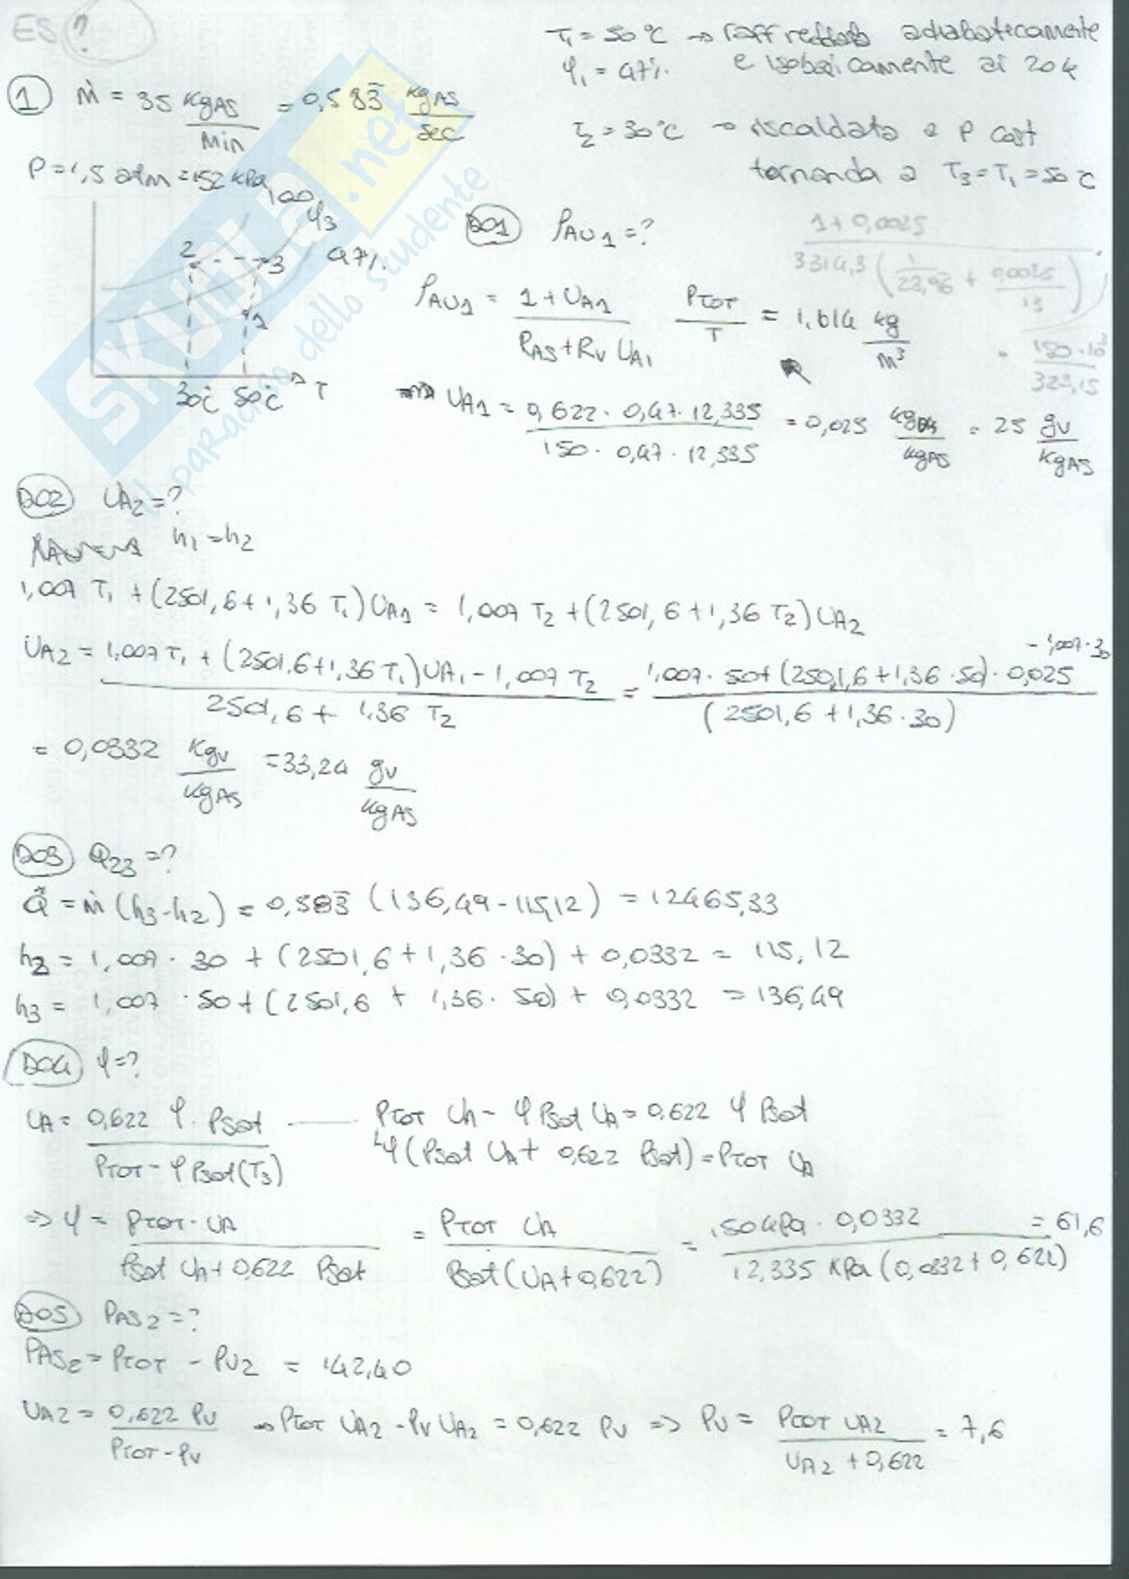 ES ?
T₁ = 50°C → raffreddata adiabaticamente
φ₁ = 47% e isobaricamente di 20 K
① ṁ = 35 kgAS/min = 0,583̄ kgAS/sec
T₂ = 30°C → riscaldata a P cost
tornando a T₃ = T₁ = 50°C
P = 1,5 atm = 152 kPa
100
φ₃
47%
2
3
1
30°C 50°C T
D01 ρAU1 = ?
1 + 0,0025
ρAU1 = (1 + UA1)/(RAS + RV UA1) PTOT/T = 1,614 kg/m³
150·10³/323,15
⇒ UA1 = (0,622 · 0,47 · 12,335)/(150 · 0,47 · 12,335) = 0,025 /kgAS = 25 gv/kgAS
D02 UA2 = ?
h₁ = h₂
1,007 T₁ + (2501,6 + 1,36 T₁) UA1 = 1,007 T₂ + (2501,6 + 1,36 T₂) UA2
UA2 = (1,007 T₁ + (2501,6 + 1,36 T₁) UA1 - 1,007 T₂)/(2501,6 + 1,36 T₂) = (1,007 · 50 + (2501,6 + 1,36 · 50) · 0,025 - 1,007 · 30)/(2501,6 + 1,36 · 30)
= 0,0332 kgv/kgAS = 33,24 gv/kgAS
D03 Q23 = ?
Q̇ = ṁ (h₃ - h₂) = 0,583̄ (136,49 - 115,12) = 12465,33
h₂ = 1,007 · 30 + (2501,6 + 1,36 · 30) + 0,0332 = 115,12
h₃ = 1,007 · 50 + (2501,6 + 1,36 · 50) + 0,0332 = 136,49
D04 φ = ?
UA = (0,622 φ · Psat)/(PTOT - φ Psat(T₃)) PTOT UA - φ Psat UA = 0,622 φ Psat
φ (Psat UA + 0,622 Psat) = PTOT UA
⇒ φ = (PTOT · UA)/(Psat UA + 0,622 Psat) = (PTOT UA)/(Psat (UA + 0,622)) = (150 kPa · 0,0332)/(12,335 kPa (0,0332 + 0,622)) = 61,6
D05 PAS2 = ?
PAS2 = PTOT - PV2 = 142,40
UA2 = (0,622 Pv)/(PTOT - Pv) → PTOT UA2 - Pv UA2 = 0,622 Pv ⇒ Pv = (PTOT UA2)/(UA2 + 0,622) = 7,6
SKUOLA.net
il paRadiso dello studente